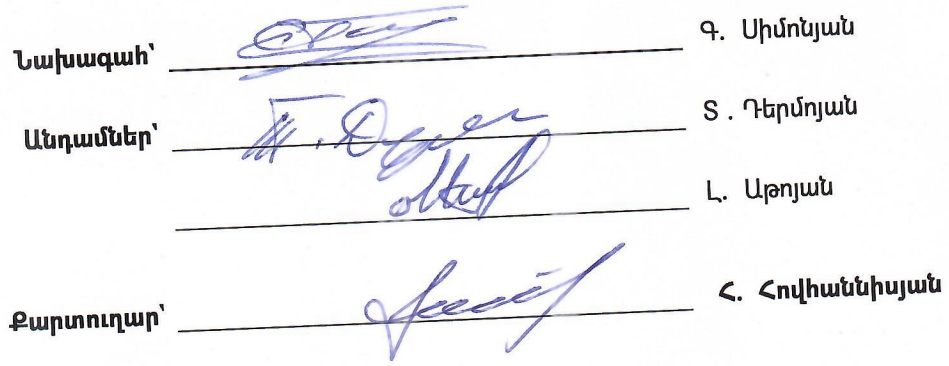 Նախագահ՝ Գ. Սիմոնյան
Անդամներ՝ Տ. Դերմոյան
Լ. Աթոյան
Քարտուղար՝ Հ. Հովհաննիսյան